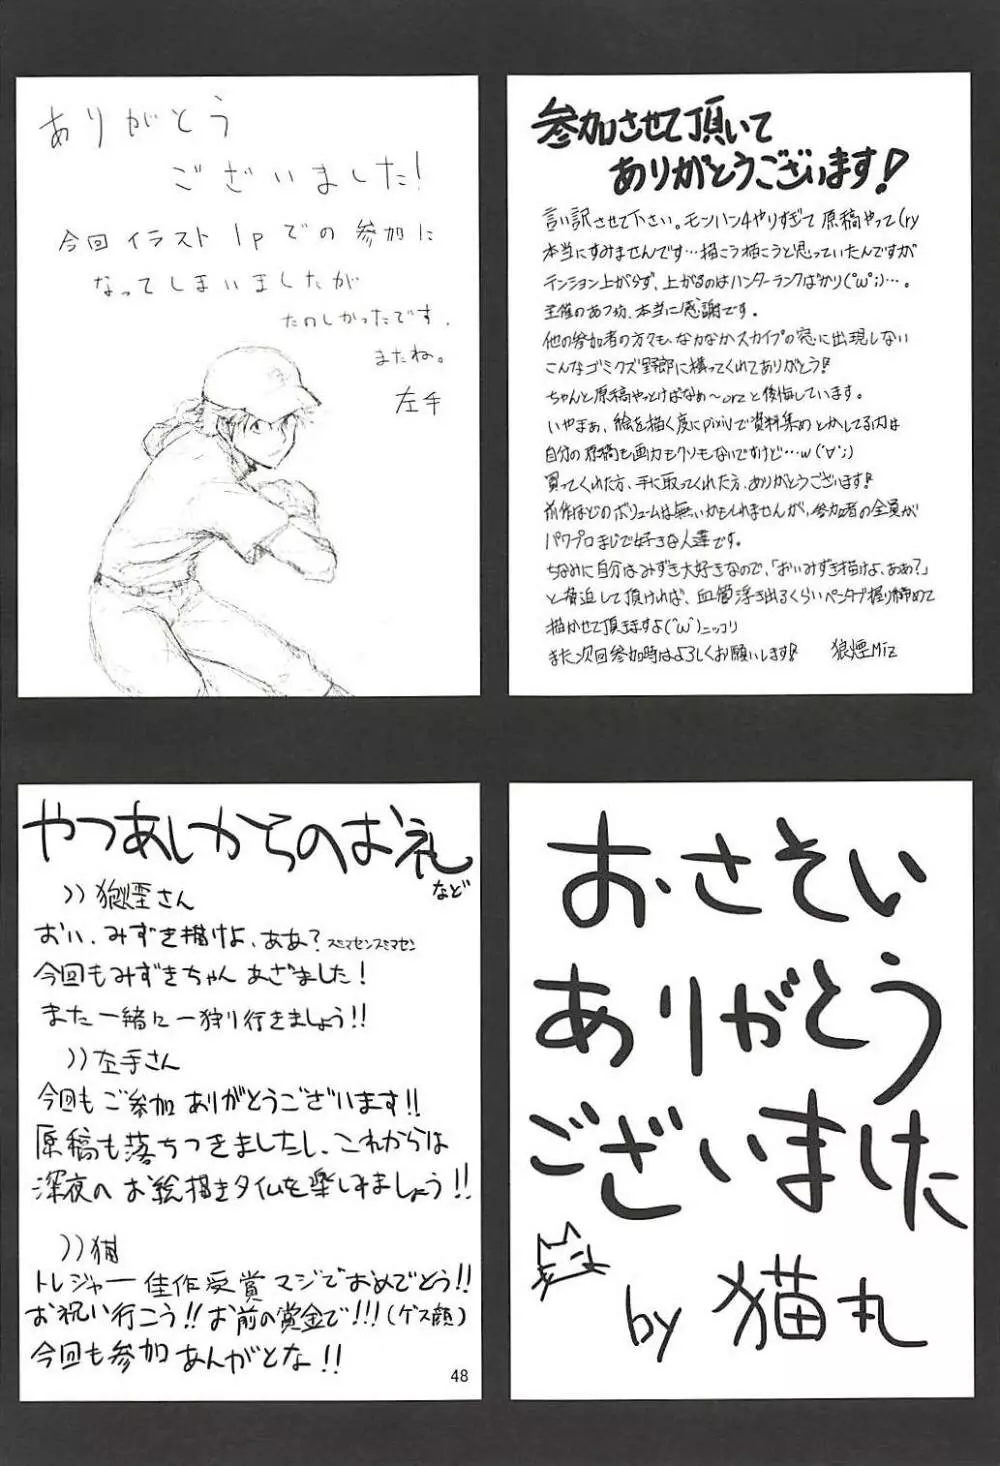 ありがとう
ございました!
今回イラスト1pでの参加に
なってしまいましたが
たのしかったです.
またね。
左手
参加させて頂いて
ありがとうございます!
言い訳させて下さい。モンハン4やりすぎて原稿やって(ry
本当にすみませんです…描こう描こうと思っていたんですが
テンション上がらず、上がるのはハンターランクばかり(°ω°;)…。
主催のあつ坊、本当に感謝です。
他の参加者の方々も、なかなかスカイプの窓に出現しない
こんなゴミクズ野郎に構ってくれてありがとう!
ちゃんと原稿やっとけばなぁ〜orzと後悔しています。
いやまぁ、絵を描く度にpixivで資料集めとかしてる内は
自分の原稿も画力もクソもないですけど…w(´∀`;)
買ってくれた方、手に取ってくれた方、ありがとうございます!
前作ほどのボリュームは無いかもしれませんが、参加者の全員が
パワプロまじで好きな人達です。
ちなみに自分はみずき大好きなので、「おいみずき描けよ、ああ?」
と脅迫して頂ければ、血管浮き出るくらいペンタブ握り締めて
描かせて頂きますよ(´ω`)ニッコリ
また次回参加時はよろしくお願いします! 狼煙Miz
やつあしからのお礼
など
))狼煙さん
おい、みずき描けよ、ああ?スミマセンスミマセン
今回もみずきちゃんあざました!
また一緒に一狩り行きましょう!!
))左手さん
今回もご参加ありがとうございます!!
原稿も落ちつきましたし、これからは
深夜のお絵描きタイムを楽しみましょう!!
))猫
トレジャー佳作受賞マジでおめでとう!!
お祝い行こう!!お前の賞金で!!!(ゲス顔)
今回も参加あんがとな!!
48
おさそい
ありがとう
ございました
by 猫丸